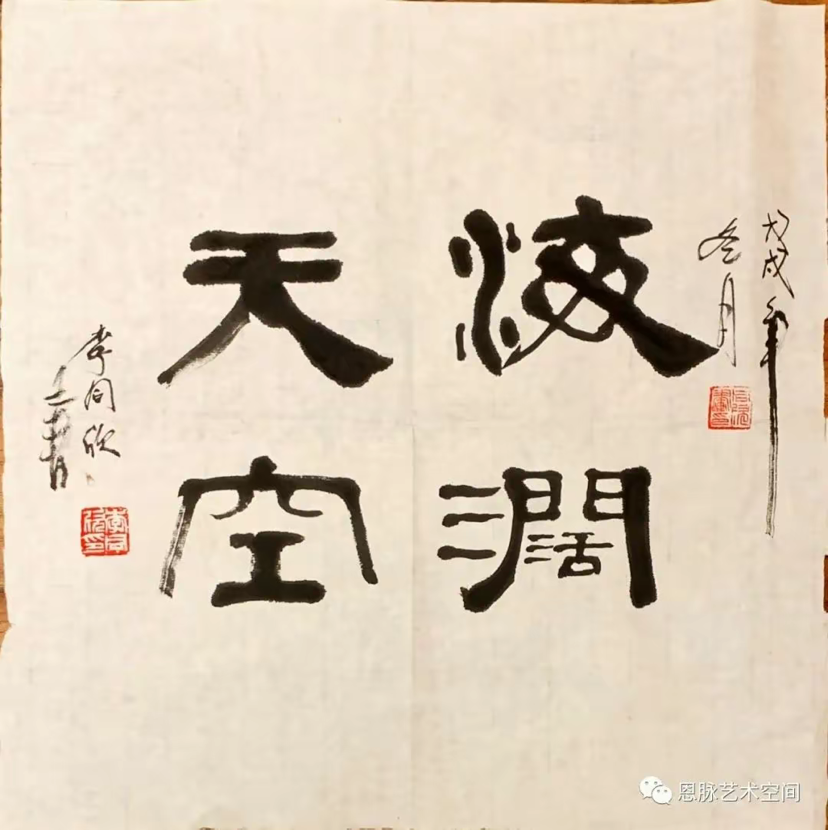 戊戌年
冬月
海濶
天空
李同欣
恩脉艺术空间